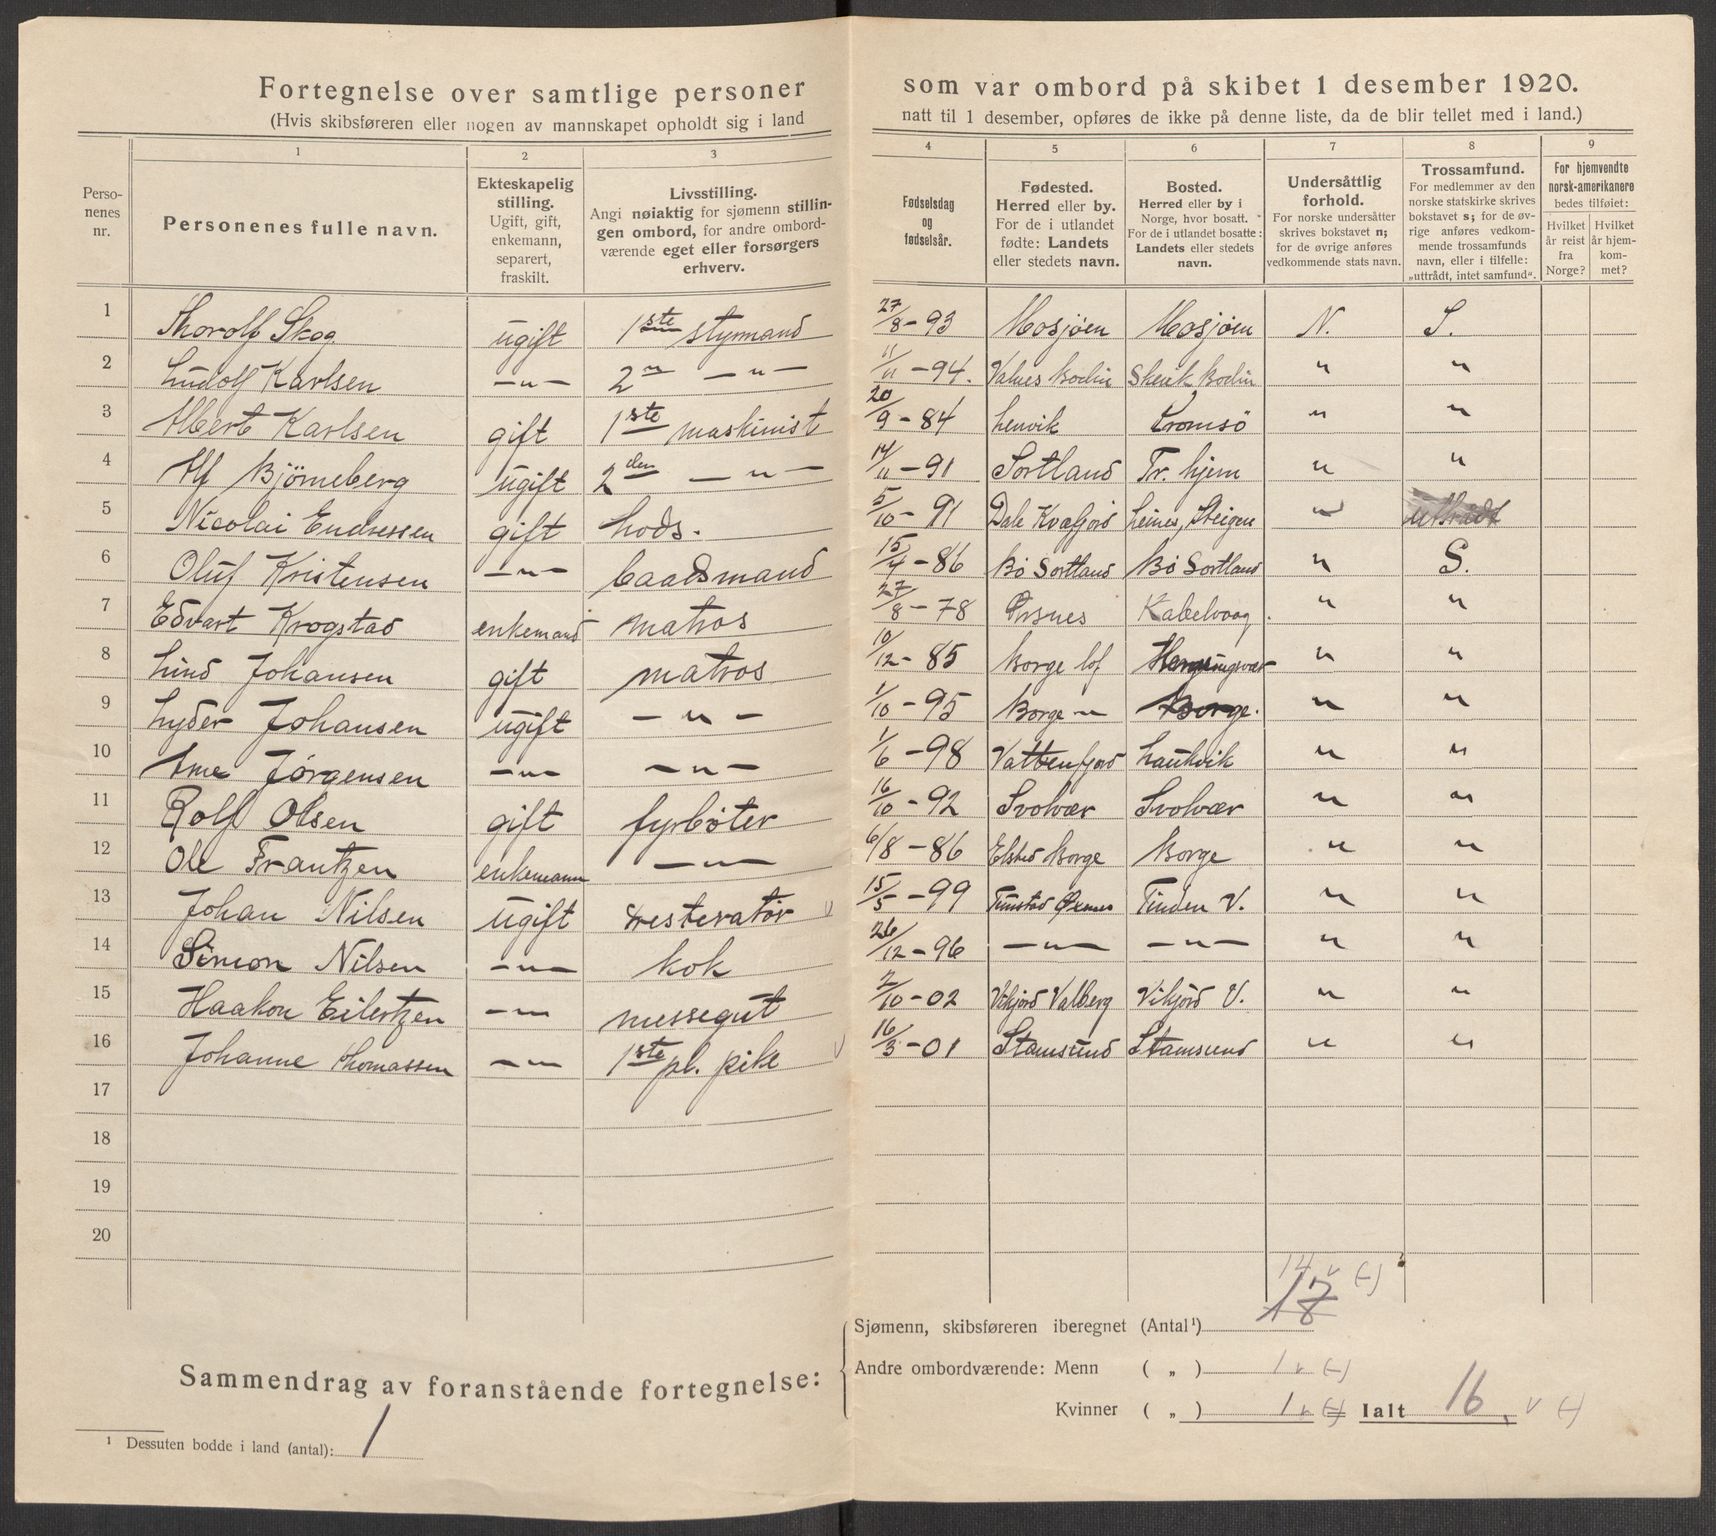 Fortegnelse over samtlige personer som var ombord på skibet 1 desember 1920.
(Hvis skibsføreren eller nogen av mannskapet opholdt sig i land natt til 1 desember, opføres de ikke på denne liste, da de blir tellet med i land.)
1 2 3 4 5 6 7 8 9
Perso-
nenes
nr.
Personenes fulle navn.
Ekteskapelig
stilling.
Ugift, gift,
enkemann,
separert,
fraskilt.
Livsstilling.
Angi nøiaktig for sjømenn stillin-
gen ombord, for andre ombord-
værende eget eller forsørgers
erhverv.
Fødselsdag
og
fødselsår.
Fødested.
Herred eller by.
For de i utlandet
fødte: Landets
eller stedets navn.
Bosted.
Herred eller by i
Norge, hvor bosatt.
For de i utlandet bosatte:
Landets eller stedets
navn.
Undersåttlig
forhold.
For norske undersåtter
skrives bokstavet n;
for de øvrige anføres
vedkommende stats navn.
Trossamfund.
For medlemmer av den
norske statskirke skrives
bokstavet s; for de øv-
rige anføres vedkom-
mende trossamfunds
navn, eller i tilfelle:
„uttrådt, intet samfund“.
For hjemvendte
norsk-amerikanere
bedes tilføiet:
Hvilket
år reist
fra
Norge?
Hvilket
år hjem-
kom-
met?
1 Thorolf Skog ugift 1ste styrmand 27/8-93 Mosjøen Mosjøen N. S.
2 Ludolf Karlsen —"— 2n —"— 11/11-94. Valnes Bodin Skeik Bodin " "
3 Albert Karlsen gift 1ste maskinist 20/9-84 Lenvik Tromsö " "
4 Alf Björneberg ugift 2den —"— 14/11-91 Sortland Tr. hjem " "
5 Nicolai Endressen gift Lods. 5/10-91 Dale Kvæfjord Leines, Steigen " uttrådt
6 Oluf Kristensen —"— baadsmand 15/4-86 Bö Sortland Bö Sortland " S.
7 Edvart Krogstad enkemand matros 27/8-78 Ørsnes Kabelvaag. " "
8 Lind Johansen gift matros 10/12-85 Borge lof Henningsvær " "
9 Lyder Johansen ugift —"— 1/10-95 Borge " Borge. " "
10 Arne Jørgensen —"— —"— 1/6-98 Vattenfjord Laukvik " "
11 Rolf Olsen gift fyrböter 16/10-92 Svolvær Svolvær " "
12 Ole Frantzen enkemann —"— 6/8-86 Elstad Borge Borge " "
13 Johan Nilsen ugift resteratør v 15/5-99 Tunstad Øxnes Tinden V. " "
14 Simon Nilsen —"— kok 26/12-96 —"— —"— " "
15 Haakon Eilertzen —"— messegut 2/10-02 Vikjord Valberg Vikjord V. " "
16 Johanne Thomassen —"— 1ste pl. pike v 16/3-01 Stamsund Stamsund " "
17
18
19
20
14 v (-)
Sammendrag av foranstående fortegnelse:
Sjømenn, skibsføreren iberegnet (Antal¹) 17
Andre ombordværende: Menn ( „ ) 1 v (-)
Kvinner ( „ ) 1 v (-) = Ialt 16. v (-)
¹ Dessuten bodde i land (antal): 1